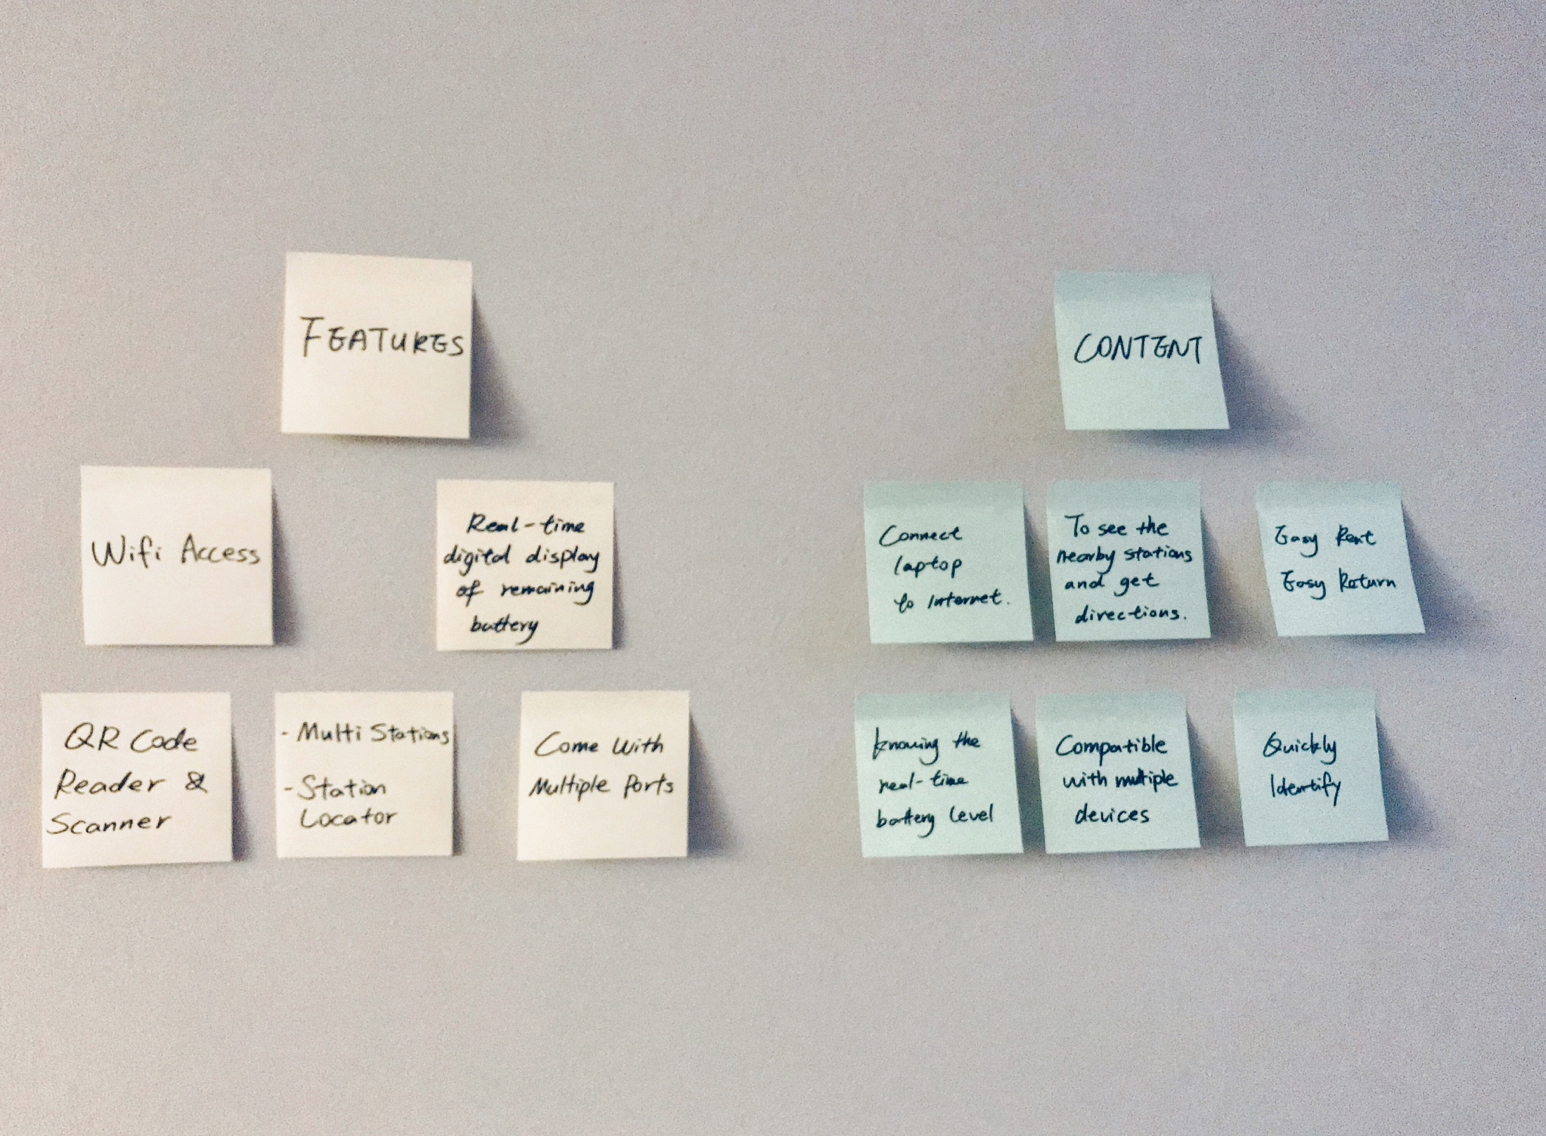 FEATURES
Wifi Access
Real-time
digital display
of remaining
battery
QR Code
Reader &
Scanner
- Multi Stations
- Station
Locator
Come With
Multiple Ports
CONTENT
Connect
laptop
to Internet.
To see the
nearby stations
and get
directions.
Easy Rent
Easy Return
knowing the
real-time
battery level
Compatible
with multiple
devices
Quickly
Identify